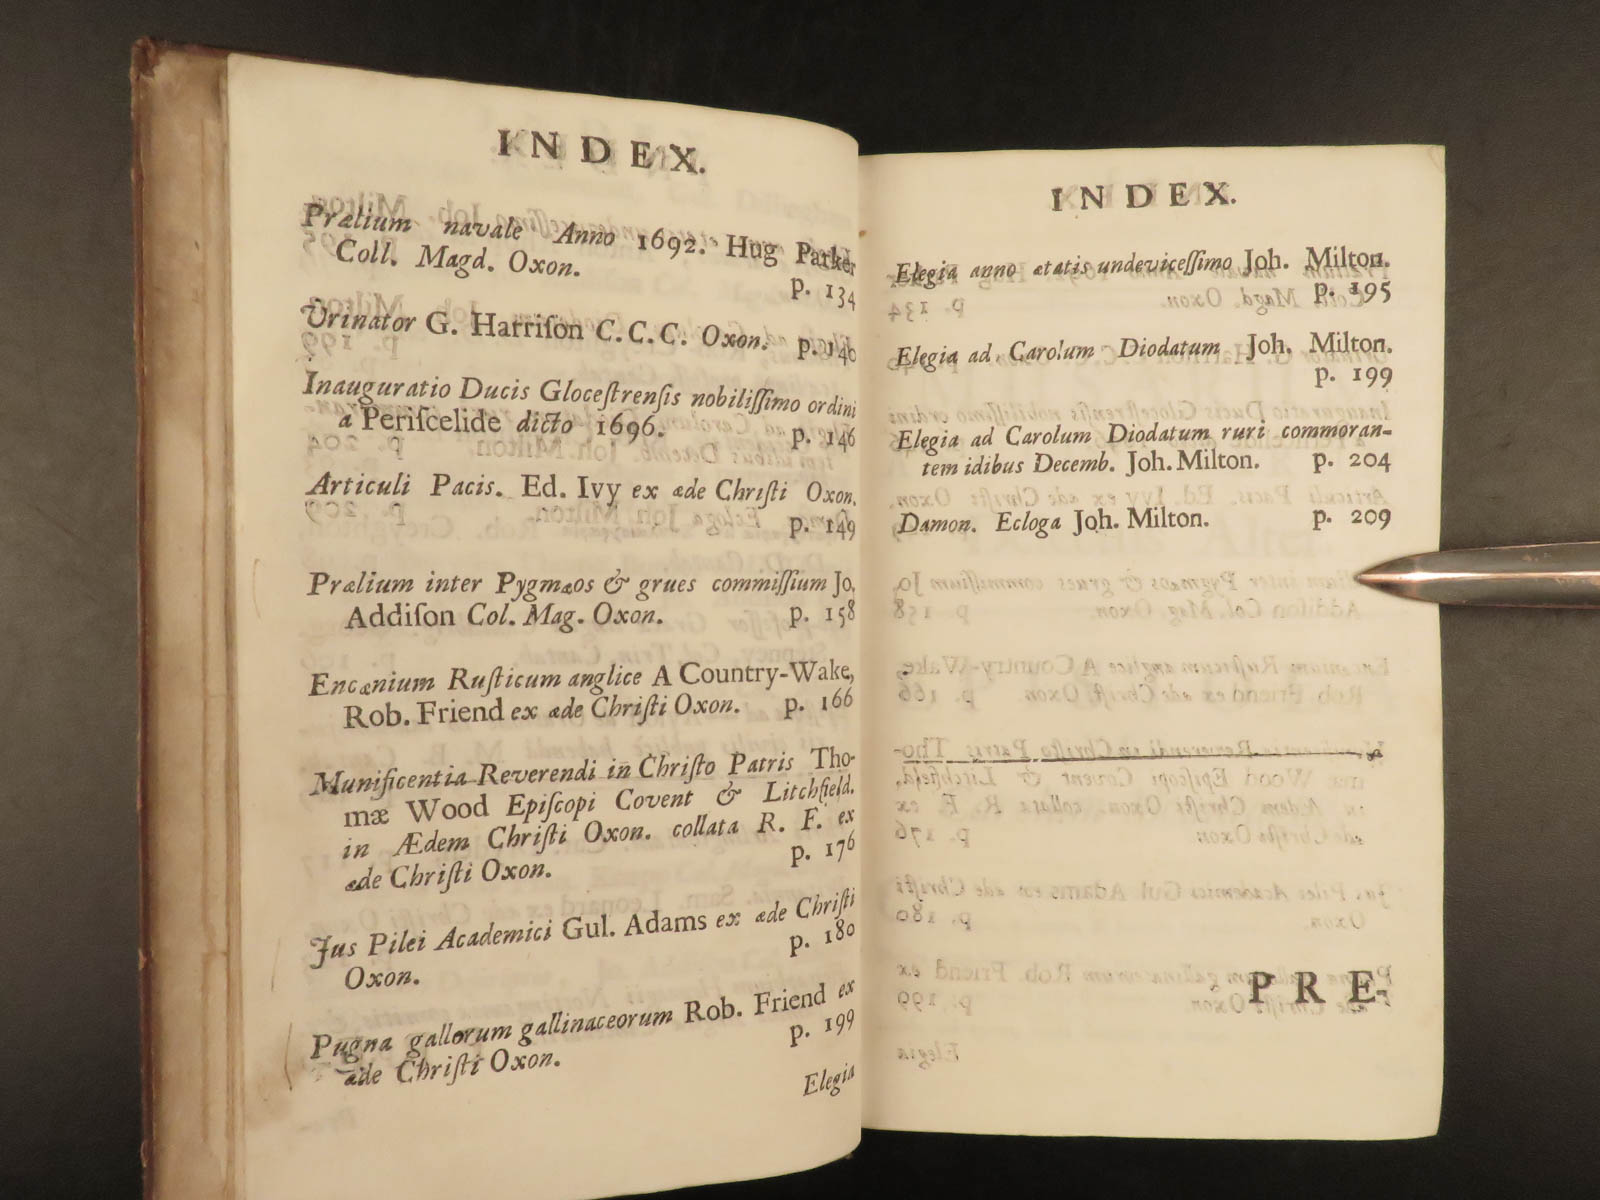 INDEX.
Prælium navale Anno 1692. Hug Parker
Coll. Magd. Oxon.
p. 134
Urinator G. Harriſon C.C.C. Oxon. p. 140
Inauguratio Ducis Gloceſtrenſis nobiliſſimo ordini
a Periſcelide dicto 1696. p. 146
Articuli Pacis. Ed. Ivy ex æde Chriſti Oxon.
p. 149
Prælium inter Pygmæos & grues commiſſium Jo.
Addiſon Col. Mag. Oxon. p. 158
Encænium Ruſticum anglice A Country-Wake,
Rob. Friend ex æde Chriſti Oxon. p. 166
Munificentia Reverendi in Chriſto Patris Tho-
mæ Wood Epiſcopi Covent & Litchfield.
in Ædem Chriſti Oxon. collata R. F. ex
æde Chriſti Oxon. p. 176
Jus Pilei Academici Gul. Adams ex æde Chriſti
Oxon. p. 180
Pugna gallorum gallinaceorum Rob. Friend ex
æde Chriſti Oxon. p. 199
Elegia
INDEX.
Elegia anno ætatis undeviceſſimo Joh. Milton.
p. 195
Elegia ad Carolum Diodatum Joh. Milton.
p. 199
Elegia ad Carolum Diodatum ruri commoran-
tem idibus Decemb. Joh. Milton. p. 204
Damon. Ecloga Joh. Milton. p. 209
PRE-